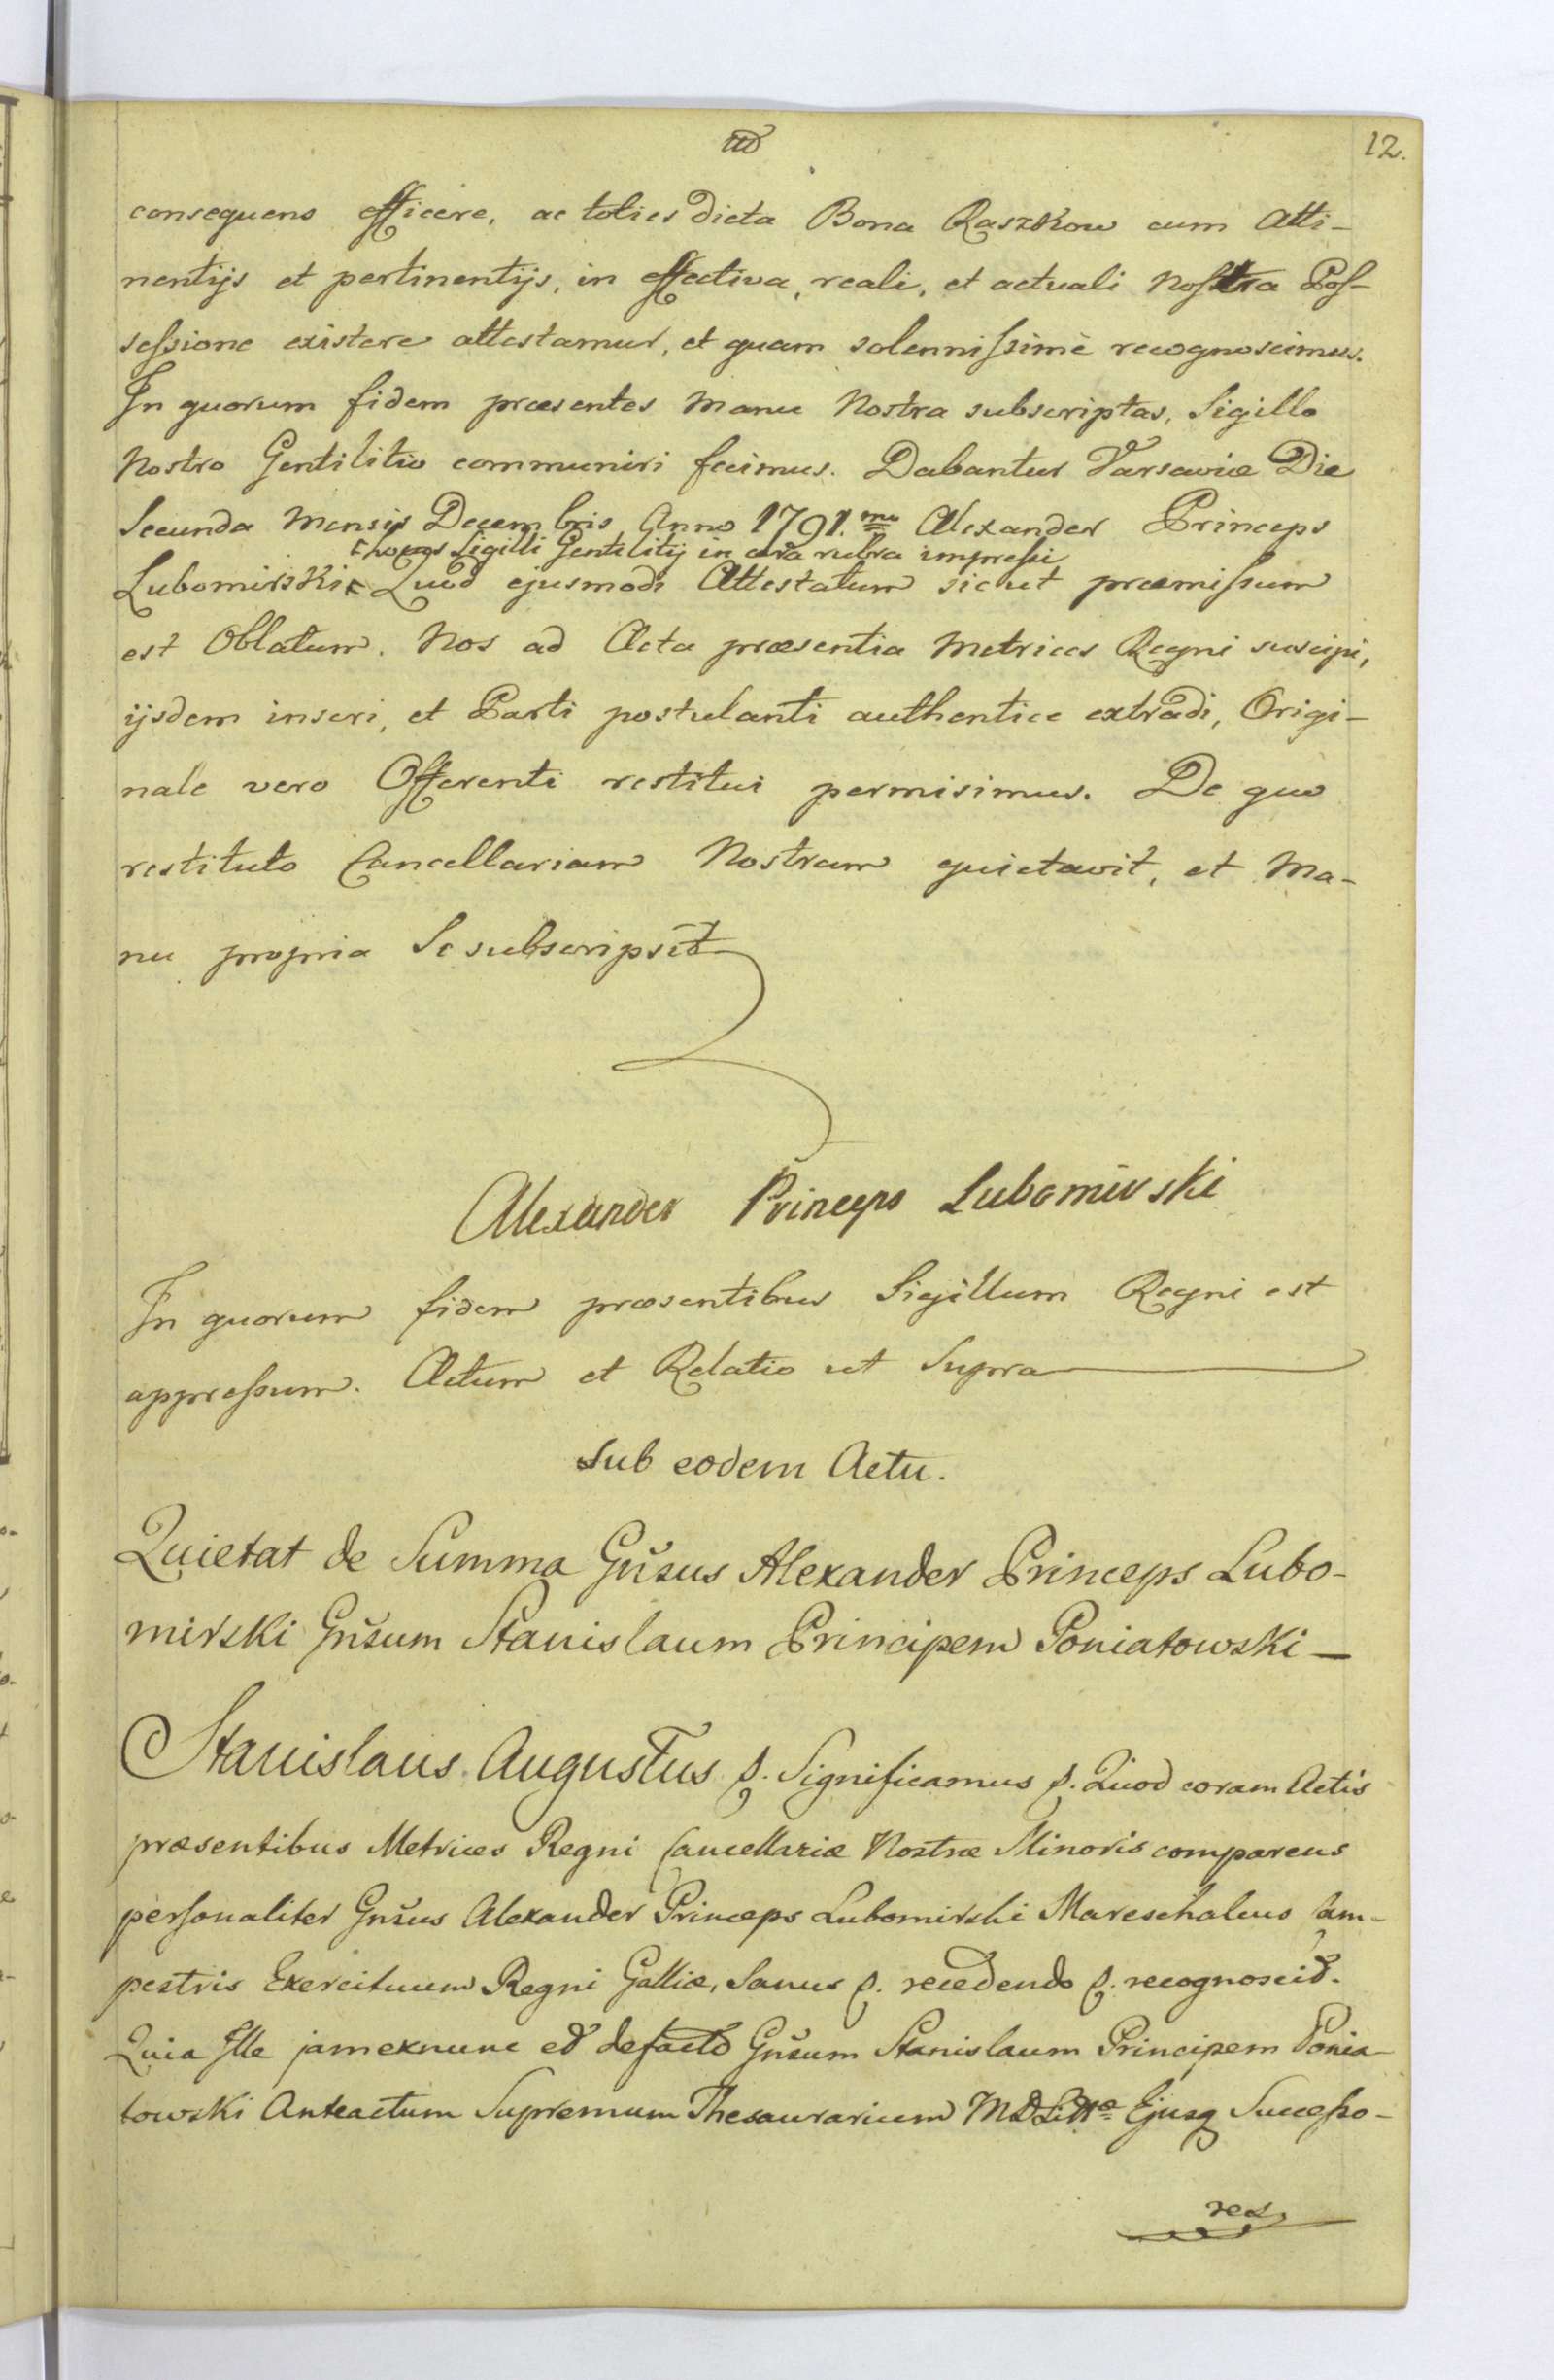 12.
consequens efficere, ac toties dicta Bona Raszkow cum Atti-
nentijs et pertinentijs, in effectiva, reali, et actuali Nostra Pos-
sessione existere attestamur, et quam solennissimè recognoscimus.
In quorum fidem præsentes manu Nostra subscriptas, Sigillo
Nostro Gentilitio communiri fecimus. Dabantur Varsaviæ Die
Secunda Mensis Decembris Anno 1791.mo Alexander Princeps
Locus Sigilli Gentilitij in cera rubra impressi
Lubomirski Quod ejusmodi Attestatum sicut præmissum
est Oblatum. Nos ad Acta præsentia Metrices Regni suscipi,
ijsdem inseri, et Parti postulanti authentice extradi, Origi-
nale vero Offerenti restitui permisimus. De quo
restituto Cancellariam Nostram quietavit, et Ma-
nu propria Se subscripsit
Alexander Princeps Lubomirski
In quorum fidem præsentibus Sigillum Regni est
appressum. Actum et Relatio ut Supra
Sub eodem Actu.
Quietat de Summa Gñsus Alexander Princeps Lubo-
mirski Gñsum Stanislaum Principem Poniatowski —
Stanislaus Augustus p. Significamus p. Quod coram Actis
præsentibus Metrices Regni Cancellariæ Nostræ Minoris comparens
personaliter Gñsus Alexander Princeps Lubomirski Mareschalcus Cam-
pestris Exercituum Regni Galliæ, Sanus p. recedendo p. recognoscit.
Quia Ille jamexnunc et defacto Gñsum Stanislaum Principem Ponia-
towski Anteactum Supremum Thesaurarium MD Littæ Ejusq Successo-
res